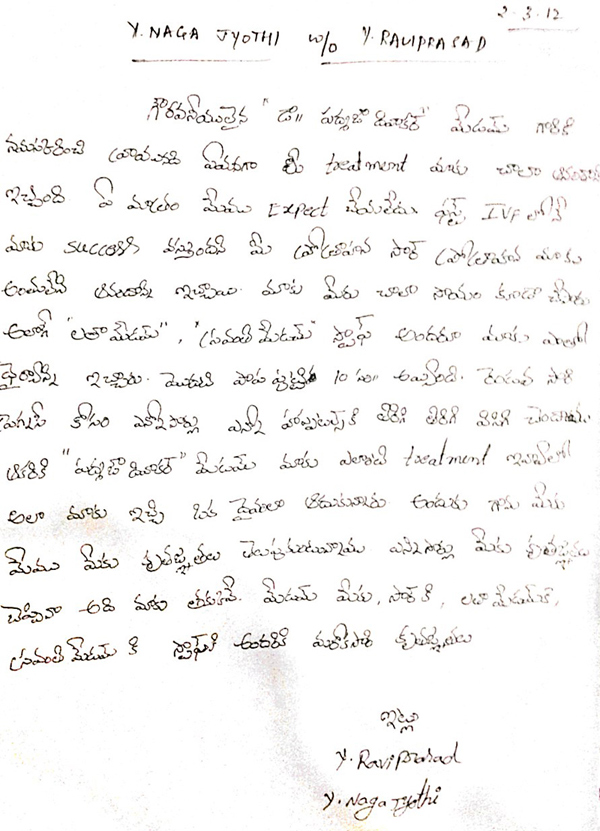 2-3-12
Y. NAGA JYOTHI W/O Y. RAVIPRASAD
గౌరవనీయులైన "డా॥ పద్మజా దివాకర్" మేడమ్ గారికి
నమస్కరించి వ్రాయునది ఏమనగా మీ treatment మాకు చాలా ఆనందాన్ని
ఇచ్చింది ఏ మాత్రం మేము Expect చేయలేదు ఫస్ట్ IVF లోనే
మాకు success వస్తుందని మీ ప్రోత్సాహం సార్ ప్రోత్సాహం మాకు
అంతులేని ఆనందాన్ని ఇచ్చాయి. మాకు మీరు చాలా సాయం కూడా చేసారు
అలాగే "లతా మేడమ్", "స్రవంతి మేడమ్" స్టాఫ్ అందరూ మాకు ఎంతో
ధైర్యాన్ని ఇచ్చారు. మొదటి పాప పుట్టి 10 సం॥ అయ్యింది. రెండవ సారి
కోసం ఎన్నోసార్లు ఎన్నో హాస్పిటల్స్ కి తిరిగి తిరిగి విసిగి చెందాము
ఆఖరికి "పద్మజా దివాకర్" మేడమ్ మాకు ఎలాంటి treatment ఇవ్వాలో
అలా మాకు ఇచ్చి ఒక దైవంలా ఆదుకున్నారు అందుకు గాను మీకు
మేము మీకు కృతజ్ఞతలు తెలుపుకుంటున్నాము ఎన్నిసార్లు మీకు కృతజ్ఞతలు
చెప్పినా అది మాకు తక్కువే. మేడమ్ మీకు, సార్ కి, లతా మేడమ్ కి,
స్రవంతి మేడమ్ కి స్టాఫ్ కి అందరికి మరొకసారి కృతజ్ఞతలు
ఇట్లు
Y. Ravi Prasad
Y. Naga Jyothi